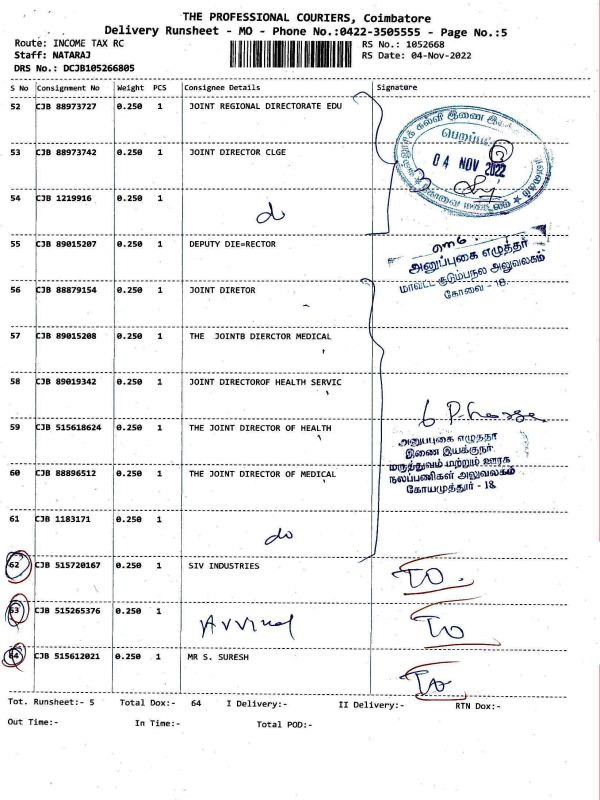 THE PROFESSIONAL COURIERS, Coimbatore
Delivery Runsheet - MO - Phone No.:0422-3505555 - Page No.:5
Route: INCOME TAX RC
RS No.: 1052668
Staff: NATARAJ
RS Date: 04-Nov-2022
DRS No.: DCJB105266805
S No Consignment No Weight PCS Consignee Details Signature
52 CJB 88973727 0.250 1 JOINT REGIONAL DIRECTORATE EDU
53 CJB 88973742 0.250 1 JOINT DIRECTOR CLGE
04 NOV 2022
54 CJB 1219916 0.250 1
do
55 CJB 89015207 0.250 1 DEPUTY DIE=RECTOR
அனுப்புகை எழுத்தர்
மாவட்ட குடும்பநல அலுவலகம்
கோவை - 18.
56 CJB 88879154 0.250 1 JOINT DIRETOR
57 CJB 89015208 0.250 1 THE JOINTB DIERCTOR MEDICAL
58 CJB 89019342 0.250 1 JOINT DIRECTOROF HEALTH SERVIC
59 CJB 515618624 0.250 1 THE JOINT DIRECTOR OF HEALTH
இணை இயக்குநர்
மருத்துவம் மற்றும் ஊரக
நலப்பணிகள் அலுவலகம்
கோயமுத்தூர் - 18
60 CJB 88896512 0.250 1 THE JOINT DIRECTOR OF MEDICAL
61 CJB 1183171 0.250 1
do
62 CJB 515720167 0.250 1 SIV INDUSTRIES
TO
63 CJB 515265376 0.250 1
TO
64 CJB 515612021 0.250 1 MR S. SURESH
TO
Tot. Runsheet:- 5 Total Dox:- 64 I Delivery:- II Delivery:- RTN Dox:-
Out Time:- In Time:- Total POD:-